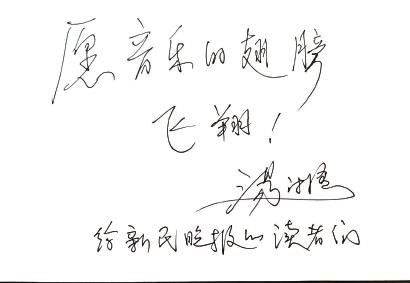 愿音乐的翅膀
飞翔！
汤沐海
给新民晚报的读者们